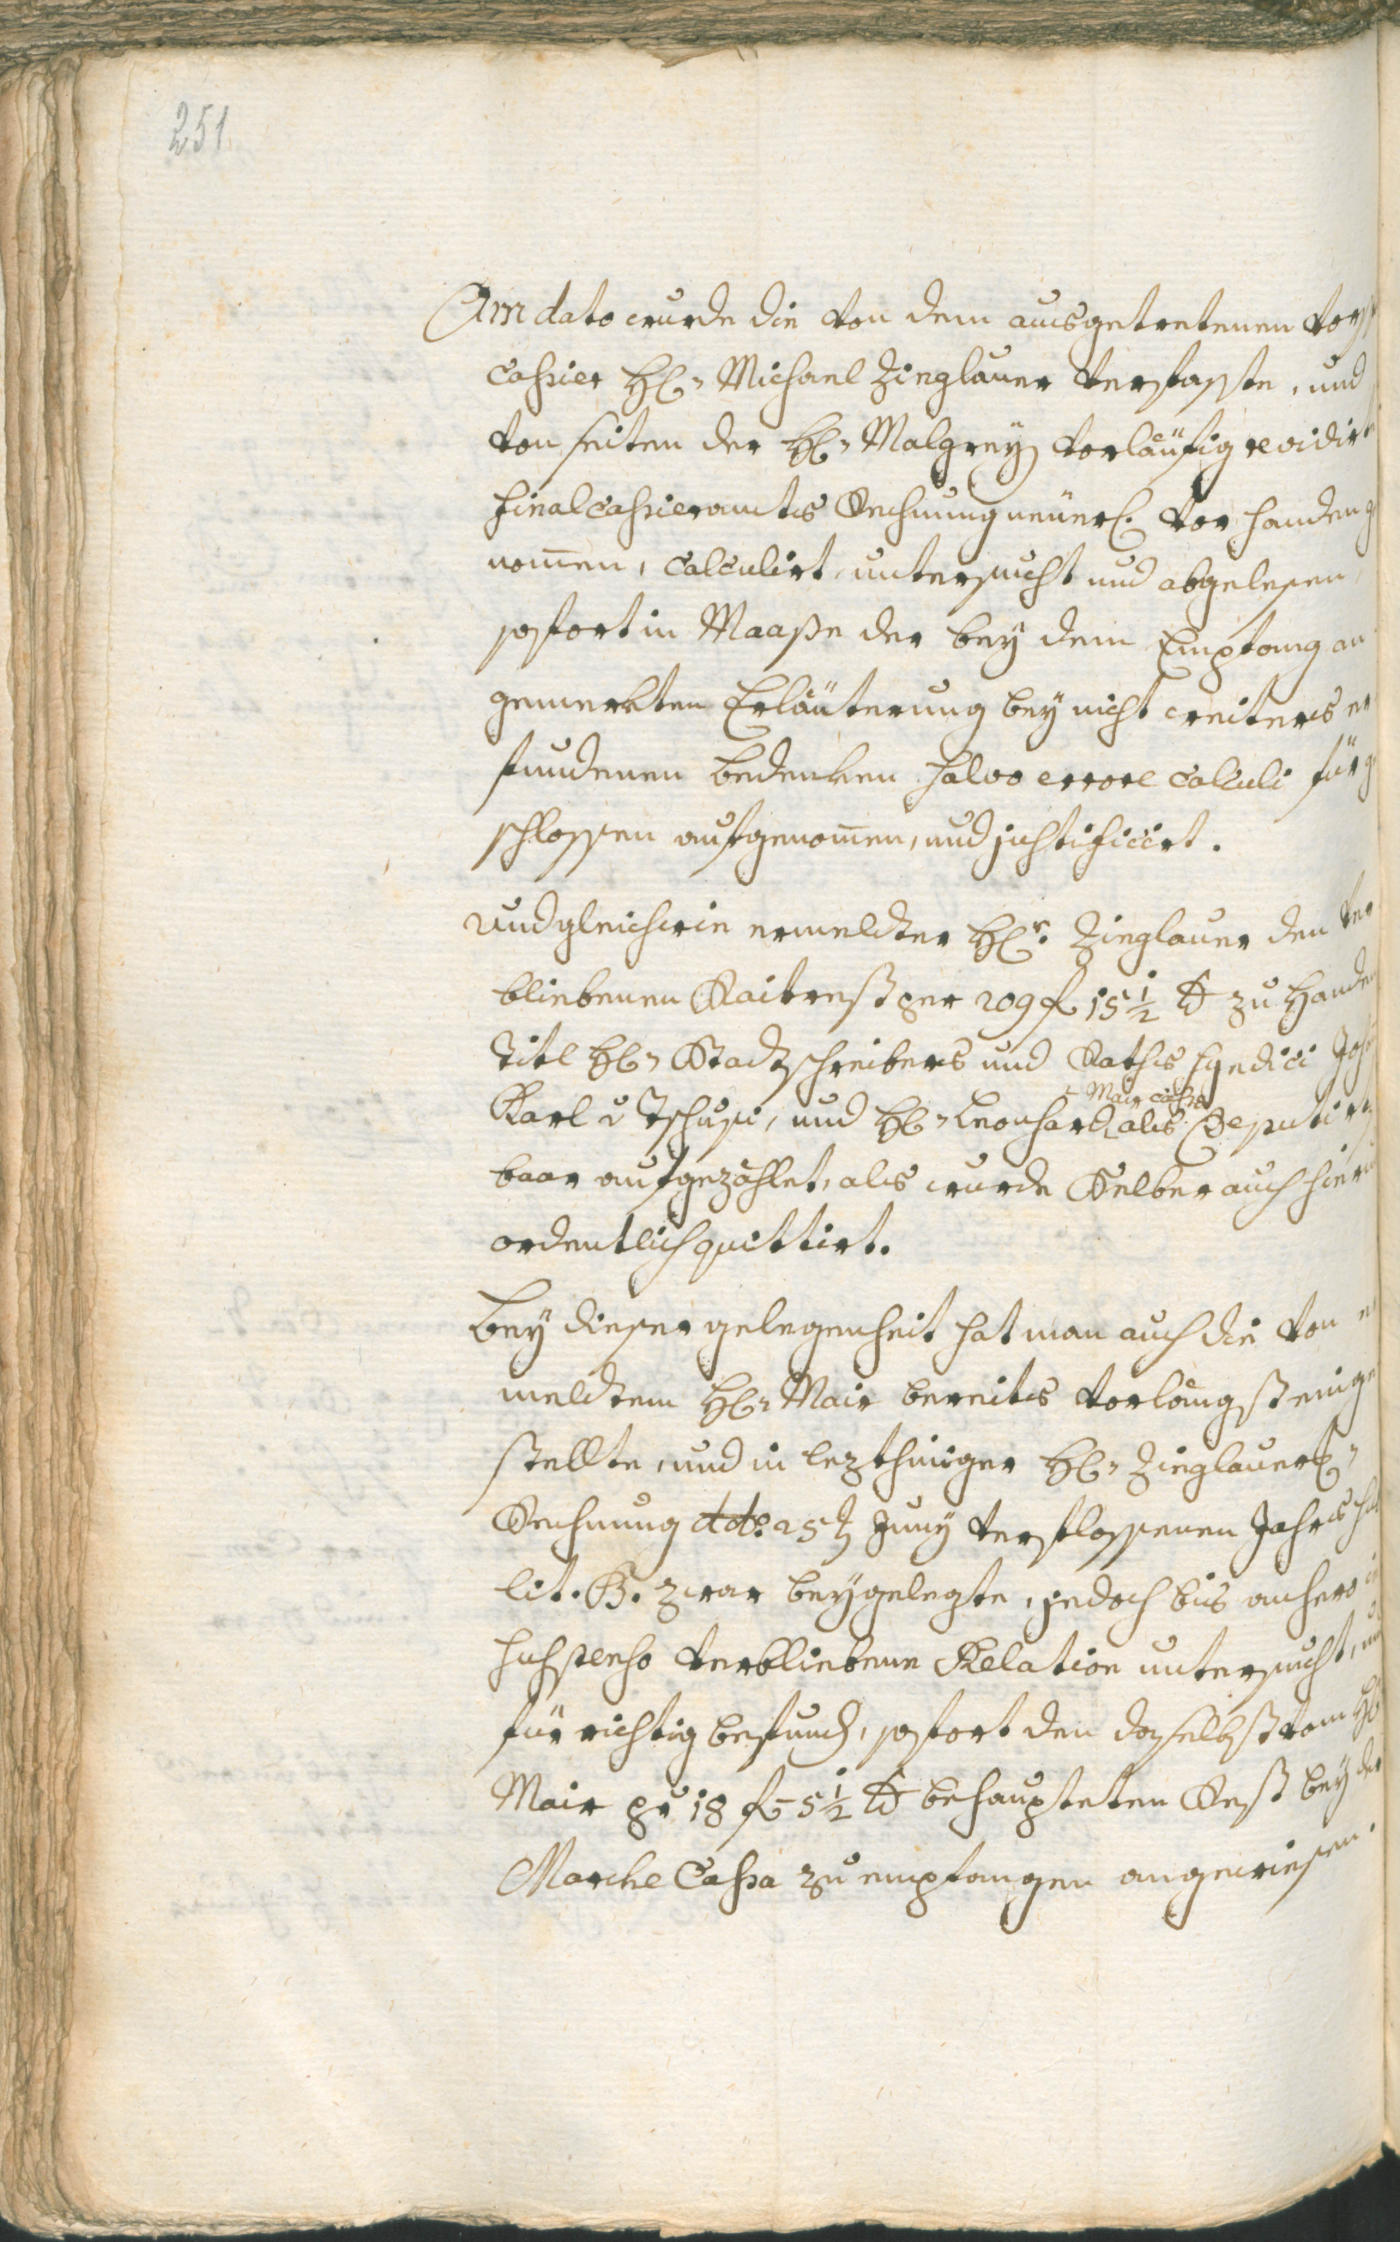 251
Am dato wurde die von dem ausgetretenen
Cassier H: Michael Zieglauer verfasste, und
von seiten der H: Malgrey vorläufig revidirte
Final Cassieramts Rechnung neuerl. vor handen ge
nom̅en, calculirt, untersucht und abgelesen,
sofort in Maaße der bey dem Empfang an
gemerkten Erläuterung bey nicht weiters er
fundenen bedenken salvo errore calculi für ge
schlossen aufgenom̅en, und justificirt.
und gleichwie ermeldter Hr. Zieglauer den ver
bliebenen Raitrest per 209 f 15 1/2 x zu Handen
Titl H: Stadtschreibers und Raths Syndici Joh
Karl v Tschusi, und H: Leonhard Mair als Deputirt
baar aufgezählet, als wurde Selber auch hierü
ordentlich quittirt.
Bey dieser gelegenheit hat man auch die von er
meldtem H: Mair bereits vorlängst einge
stellte, und in lezthiniger H: Zieglauerl:
Rechnung ddo. 25t Juny verflossenen Jahrs sub
lit. B. zwar beygelegte, jedoch bis anhero in
suspenso verbliebene Relation untersucht, und
für richtig befund, sofort den daselbst vom H:
Mair pr 18 f - 5 1/2 x behaupteten Rest bey der
Marche Cassa zu empfangen angewiesen.